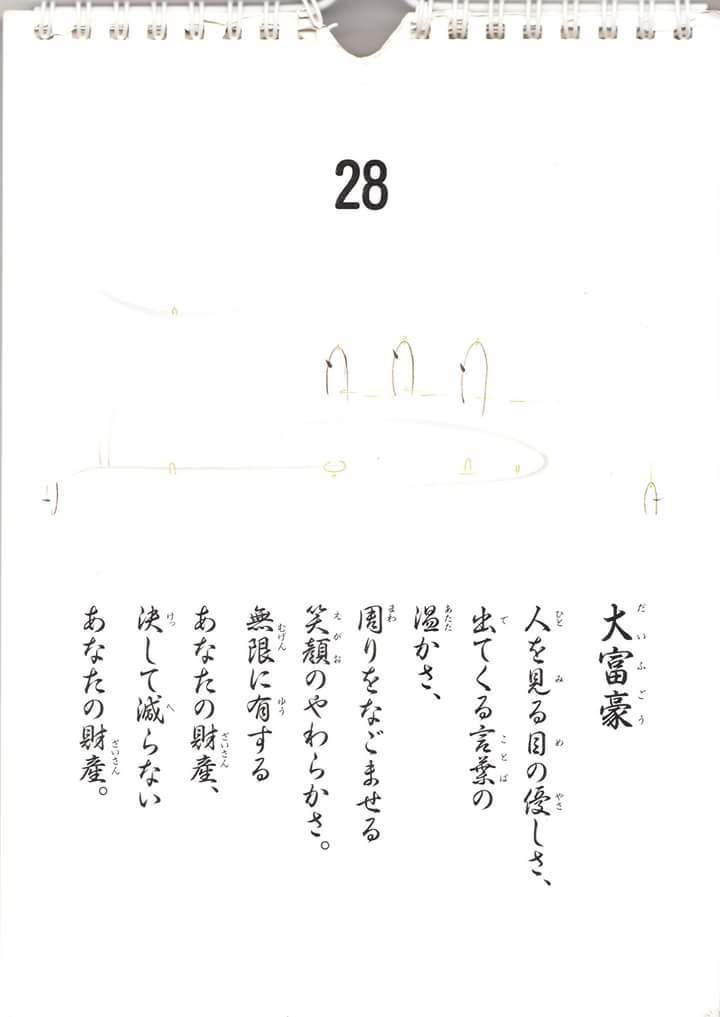 28
大富豪
人を見る目の優しさ、
出てくる言葉の
温かさ、
周りをなごませる
笑顔のやわらかさ。
無限に有する
あなたの財産、
決して減らない
あなたの財産。